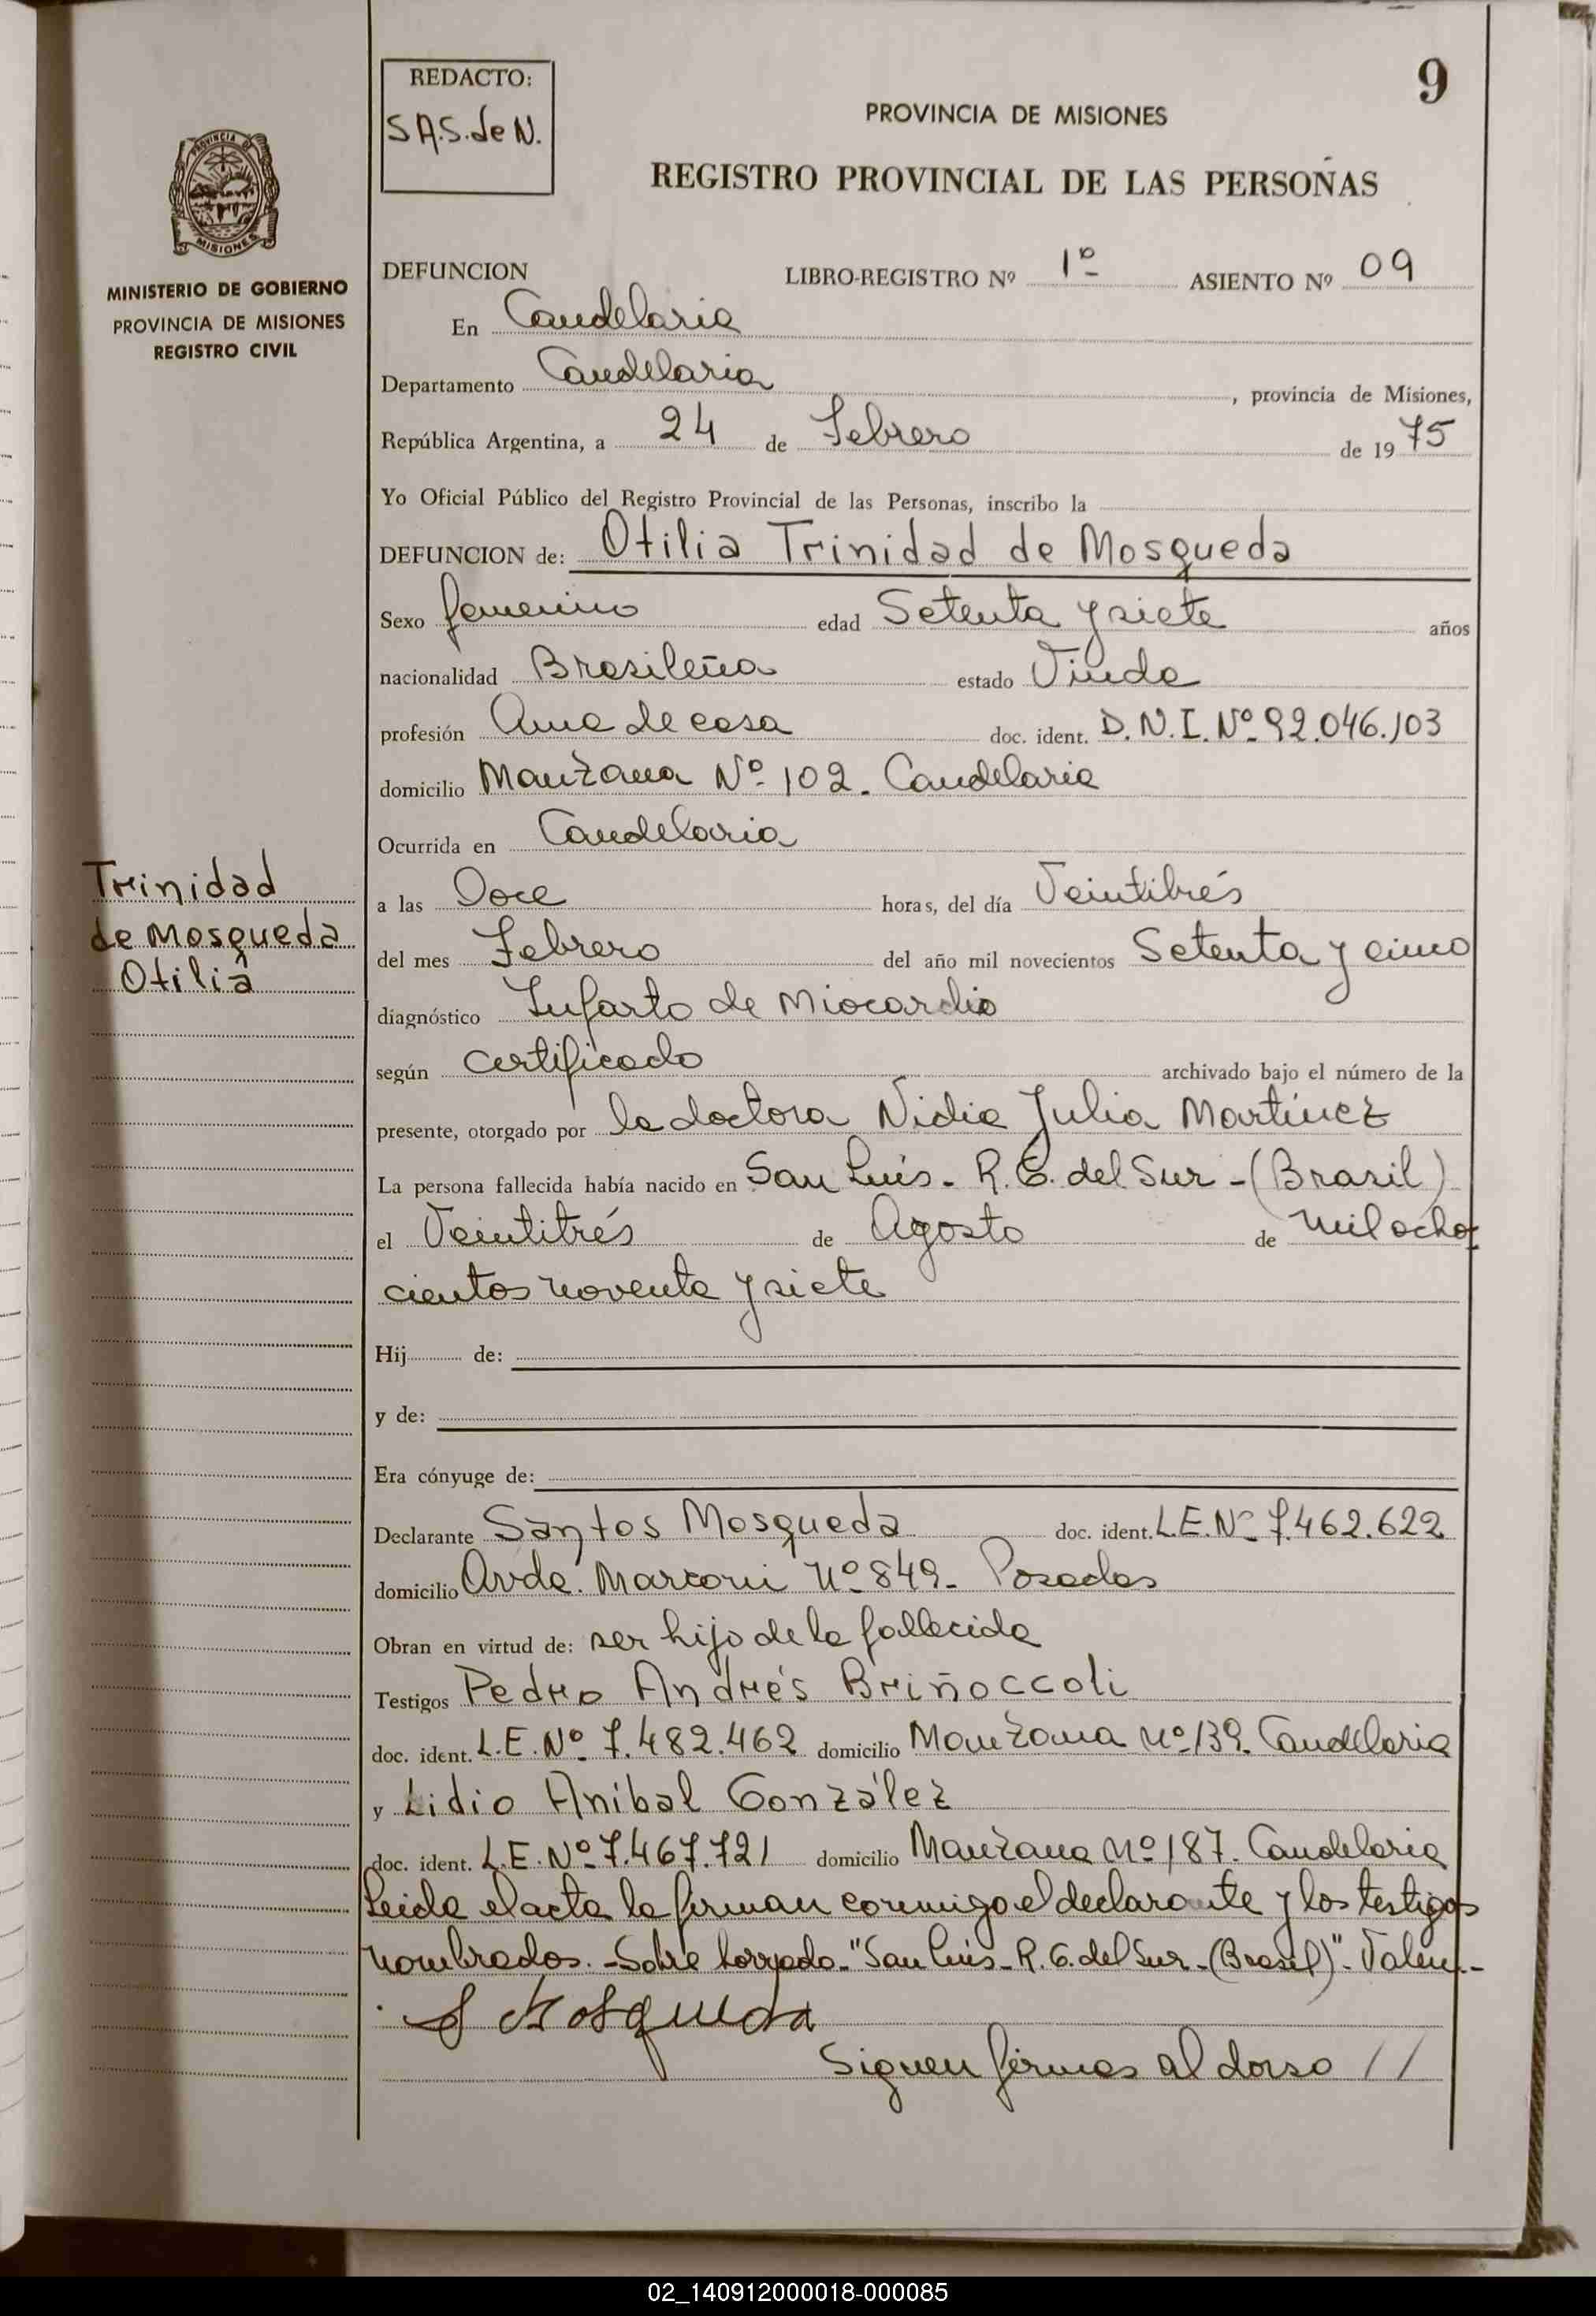 9
REDACTO:
S A.S. de N.
PROVINCIA DE MISIONES
REGISTRO PROVINCIAL DE LAS PERSONAS
PROVINCIA DE
MISIONES
MINISTERIO DE GOBIERNO
PROVINCIA DE MISIONES
REGISTRO CIVIL
DEFUNCION LIBRO-REGISTRO Nº 1º ASIENTO Nº 09
En Candelaria
Departamento Candelaria, provincia de Misiones,
República Argentina, a 24 de Febrero de 1975
Yo Oficial Público del Registro Provincial de las Personas, inscribo la
DEFUNCION de: Otilia Trinidad de Mosqueda
Sexo femenino edad Setenta y siete años
nacionalidad Brasileña estado Viuda
profesión Ama de casa doc. ident. D.N.I. Nº 92.046.103
domicilio Manzana Nº 102. Candelaria
Ocurrida en Candelaria
Trinidad
de Mosqueda
Otilia
a las Doce horas, del día Veintitrés
del mes Febrero del año mil novecientos Setenta y cinco
diagnóstico Infarto de Miocardio
según certificado archivado bajo el número de la
presente, otorgado por la doctora Nidia Julia Martínez
La persona fallecida había nacido en San Luis - R. G. del Sur - (Brasil)
el Veintitrés de Agosto de mil ocho
cientos noventa y siete
Hij de:
y de:
Era cónyuge de:
Declarante Santos Mosqueda doc. ident. L.E. Nº 7.462.622
domicilio Avda. Marconi Nº 849- Posadas
Obran en virtud de: ser hijo de la fallecida
Testigos Pedro Andrés Briñoccoli
doc. ident. L.E. Nº 7.482.462 domicilio Manzana Nº 139. Candelaria
y Lidio Anibal González
doc. ident. L.E. Nº 7.467.721 domicilio Manzana Nº 187. Candelaria
Leida el acta la firman conmigo el declarante y los testigos
nombrados.-Sobre borrado-"San Luis- R. G. del Sur-(Brasil)"- Valen.-
S Mosqueda
Siguen firmas al dorso //
02_140912000018-000085